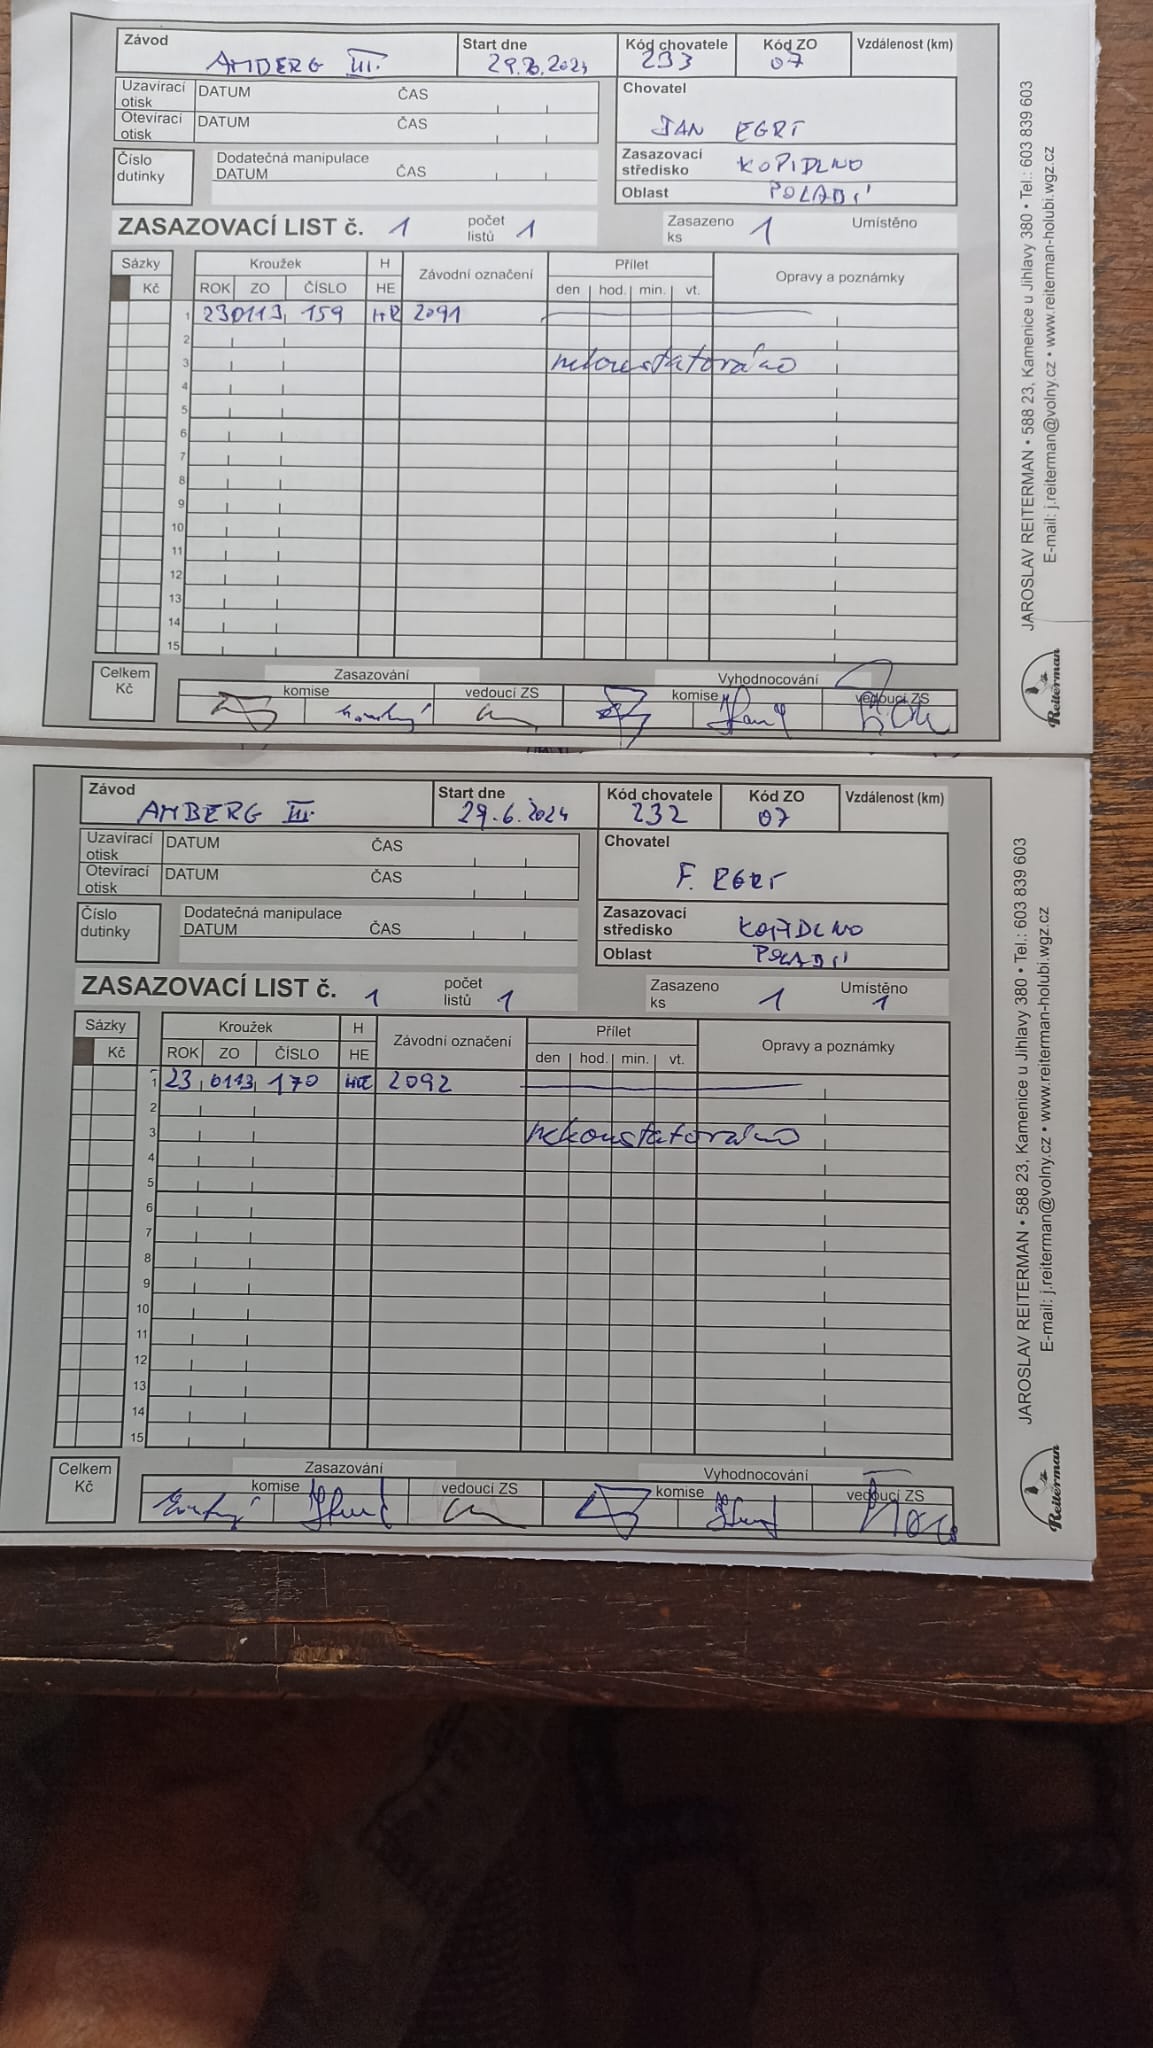 Závod Start dne Kód chovatele Kód ZO Vzdálenost (km)
AMBERG III. 29.6.2024 233 07
Uzavírací otisk DATUM ČAS Chovatel
Otevírací otisk DATUM ČAS JAN EGRT
Číslo dutinky Dodatečná manipulace DATUM ČAS Zasazovací středisko KOPIDLNO
Oblast POLABÍ
ZASAZOVACÍ LIST č. 1 počet listů 1 Zasazeno ks 1 Umístěno
Sázky Kroužek H Závodní označení Přílet Opravy a poznámky
Kč ROK ZO ČÍSLO HE den hod. min. vt.
1 23 0113 159 2091
2
3 nekonstatováno
4
5
6
7
8
9
10
11
12
13
14
15
Celkem Kč Zasazování Vyhodnocování
komise vedoucí ZS komise vedoucí ZS
JAROSLAV REITERMAN • 588 23, Kamenice u Jihlavy 380 • Tel.: 603 839 603
E-mail: j.reiterman@volny.cz • www.reiterman-holubi.wgz.cz
Reiterman
Závod Start dne Kód chovatele Kód ZO Vzdálenost (km)
AMBERG III. 29.6.2024 232 07
Uzavírací otisk DATUM ČAS Chovatel
Otevírací otisk DATUM ČAS F. EGRT
Číslo dutinky Dodatečná manipulace DATUM ČAS Zasazovací středisko KOPIDLNO
Oblast POLABÍ
ZASAZOVACÍ LIST č. 1 počet listů 1 Zasazeno ks 1 Umístěno 1
Sázky Kroužek H Závodní označení Přílet Opravy a poznámky
Kč ROK ZO ČÍSLO HE den hod. min. vt.
1 23 0113 170 2092
2
3 nekonstatováno
4
5
6
7
8
9
10
11
12
13
14
15
Celkem Kč Zasazování Vyhodnocování
komise vedoucí ZS komise vedoucí ZS
JAROSLAV REITERMAN • 588 23, Kamenice u Jihlavy 380 • Tel.: 603 839 603
E-mail: j.reiterman@volny.cz • www.reiterman-holubi.wgz.cz
Reiterman